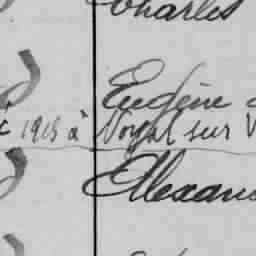 Charles
Eugène
1915 à Noyal sur V
Alexan